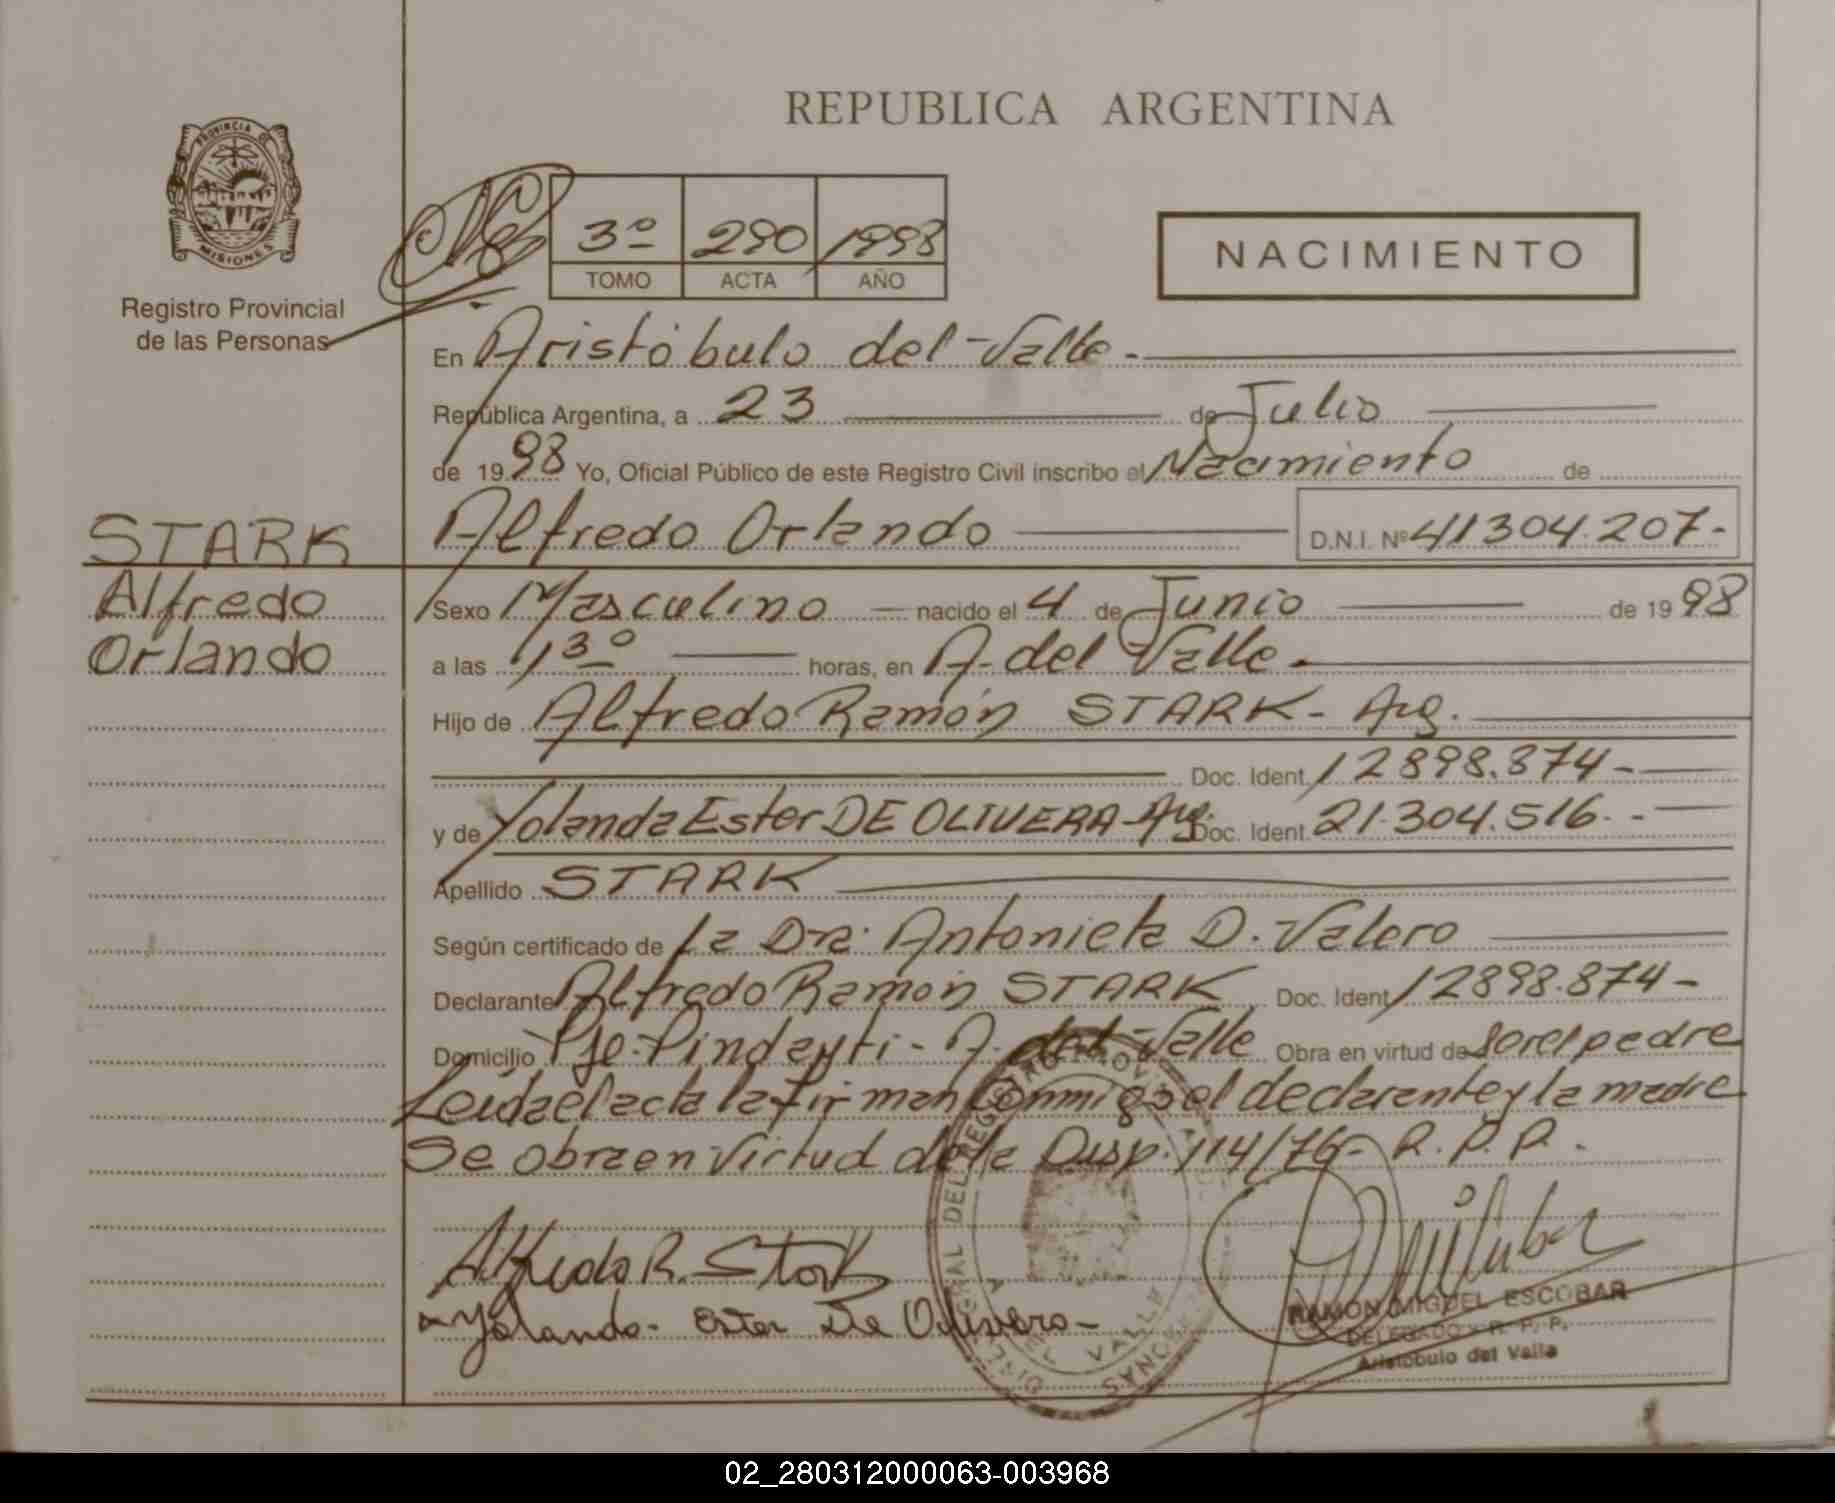 REPUBLICA ARGENTINA
PROVINCIA DE
MISIONES
Registro Provincial
de las Personas
3º 290 1998
TOMO ACTA AÑO
NACIMIENTO
En Aristóbulo del Valle.
República Argentina, a 23 de Julio
de 1998 Yo, Oficial Público de este Registro Civil inscribo el Nacimiento de
Alfredo Orlando D.N.I. Nº 41304.207.-
STARK
Alfredo
Orlando
Sexo Masculino nacido el 4 de Junio de 1998
a las 13º horas, en A. del Valle.
Hijo de Alfredo Ramón STARK - Arg.
Doc. Ident. 12898.874-
y de Yolanda Ester DE OLIVERA - Arg. Doc. Ident. 21.304.516.-
Apellido STARK
Según certificado de la Dra. Antonieta D. Valero
Declarante Alfredo Ramón STARK Doc. Ident. 12898.874-
Domicilio Pje. Pindayti - A. del Valle Obra en virtud de ser el padre
Leida el acta la firman conmigo el declarante y la madre
Se obra en virtud de la Disp. 114/76- R.P.P.
Alfredo R. Stark
Yolanda Ester De Olivera
REGISTRO PROVINCIAL
DEL VALLE
RAMON MIGUEL ESCOBAR
DELEGADO R. P. P.
Aristobulo del Valle
02_280312000063-003968